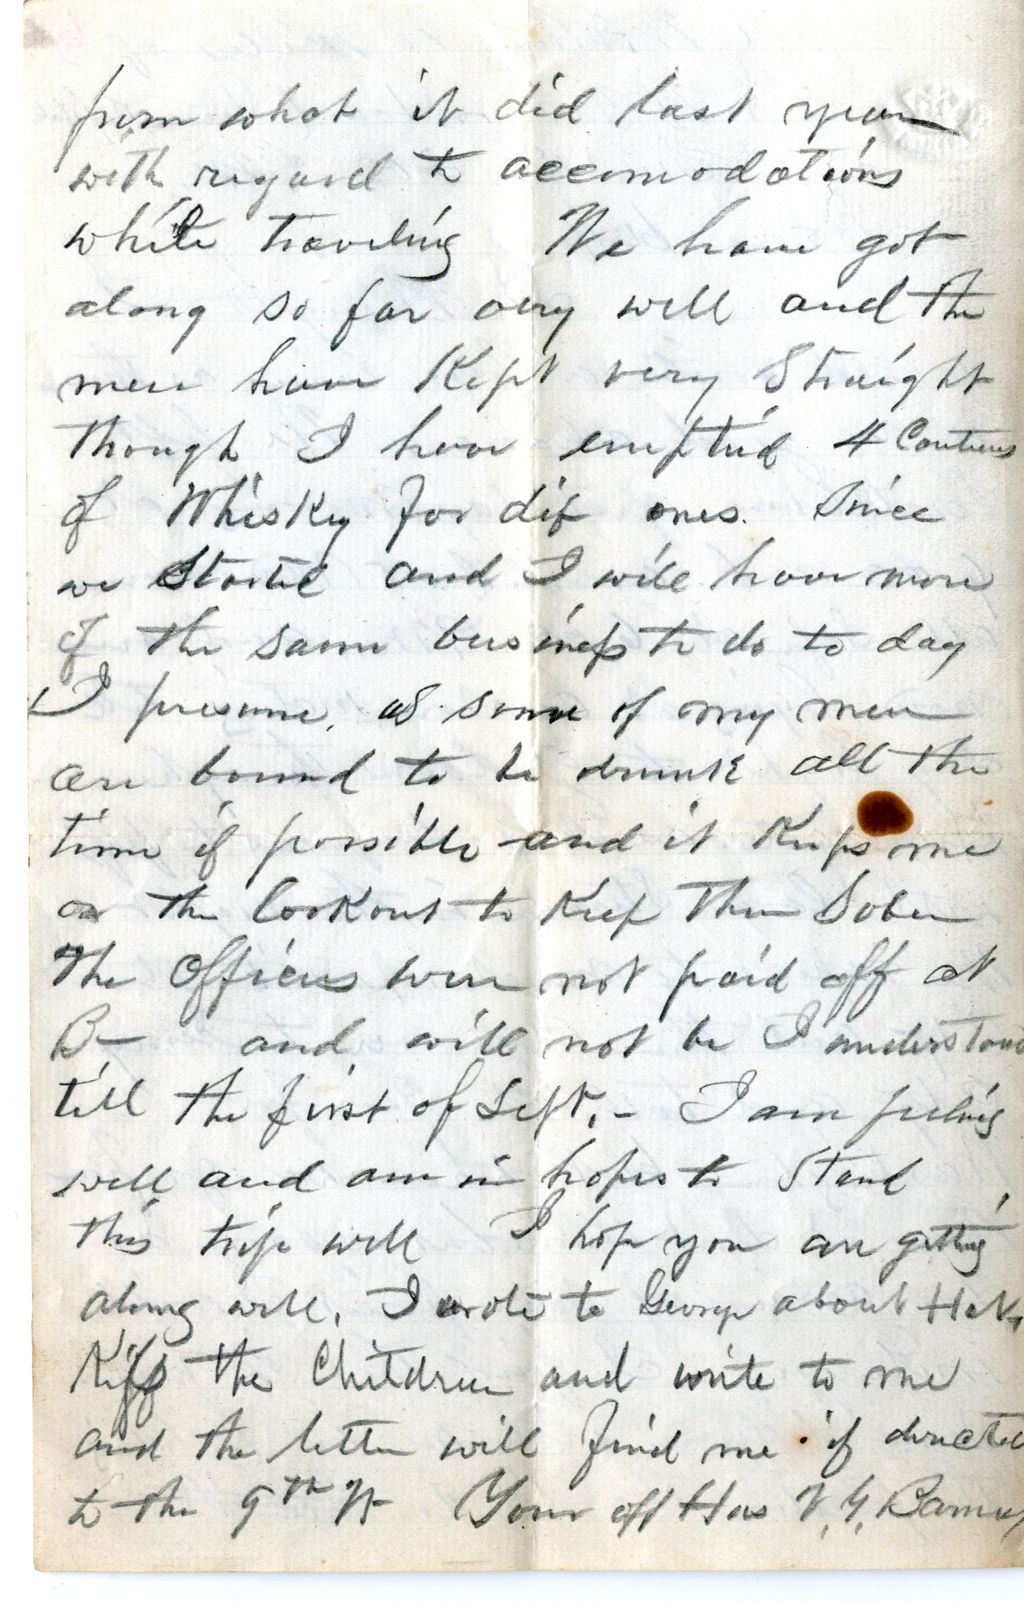 from what it did last year
with regard to accomodations
while traveling We have got
along so far very well and the
men have Kept very Straight
though I have emptied 4 Canteens
of Whiskey for dif ones. Since
we Started and I will have more
of the same business to do to day
I presume, as some of my men
are bound to be drunk all the
time if possible and it Keeps me
on the lookout to Keep them Sober
The Officers were not paid off at
B— and will not be I understand
till the first of Sept. - I am feeling
well and am in hopes to Stand
this trip well I hope you are getting
along well. I wrote to George about
Kiss the Children and write to me
and the letter will find me if directed
to the 9th Vt Your aff Hus V. G. Barney